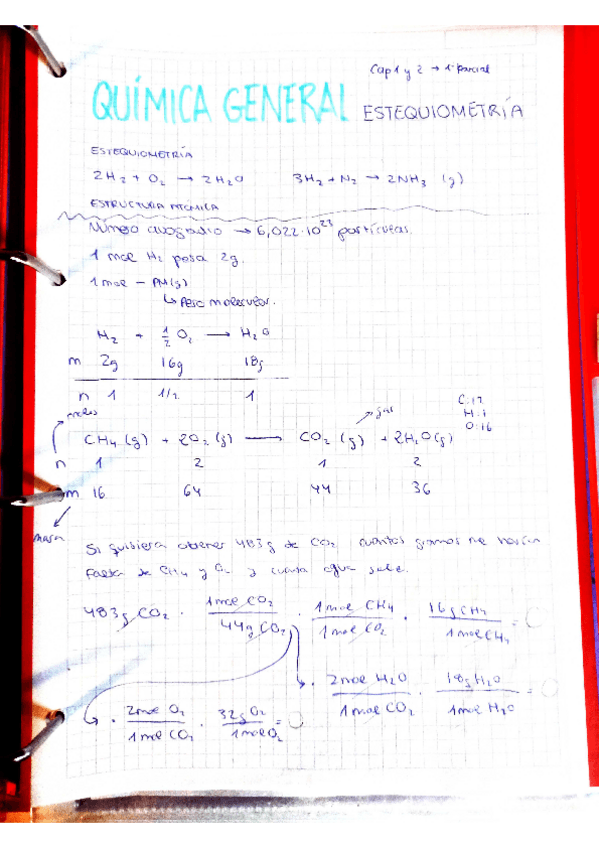 Cap 1 y 2 → 1º Parcial
QUÍMICA GENERAL ESTEQUIOMETRÍA
ESTEQUIOMETRÍA
2H₂ + O₂ → 2H₂O 3H₂ + N₂ → 2NH₃ (g)
ESTRUCTURA ATÓMICA
Número avogadro → 6,022·10²³ partículas.
1 mol H₂ pesa 2g.
1 mol – PM(g)
↳ Peso molecular.
H₂ + 1/2 O₂ → H₂O
m 2g 16g 18g
n 1 1/2 1
moles
gas
C:12
H:1
O:16
CH₄ (g) + 2O₂ (g) → CO₂ (g) + 2H₂O(g)
n 1 2 1 2
m 16 64 44 36
masa
Si quisiera obtener 483g de CO₂ cuántos gramos me harían
falta de CH₄ y O₂ y cuánta agua sale.
483g CO₂ · 1mol CO₂ / 44g CO₂ · 1mol CH₄ / 1mol CO₂ · 16g CH₄ / 1mol CH₄ =
· 2mol H₂O / 1mol CO₂ · 18g H₂O / 1mol H₂O =
· 2mol O₂ / 1mol CO₂ · 32g O₂ / 1mol O₂ =